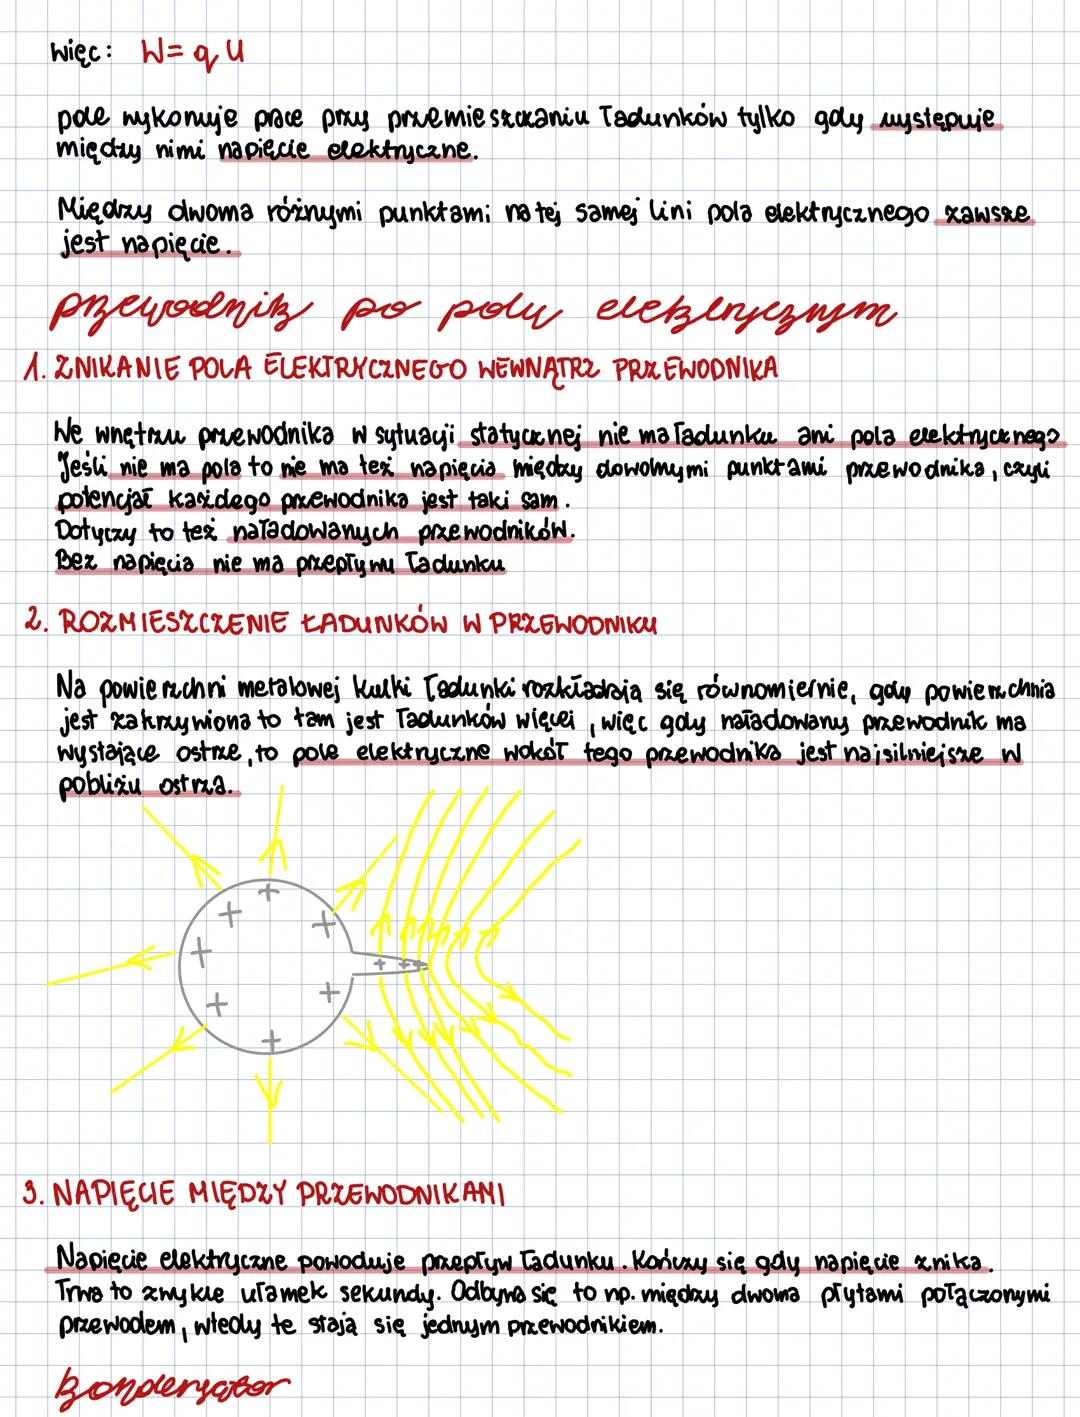 więc: W = q U
pole wykonuje prace przy przemieszczaniu ładunków tylko gdy występuje
między nimi napięcie elektryczne.
Między dwoma różnymi punktami na tej samej lini pola elektrycznego zawsze
jest napięcie.
przewodnik po polu elektrycznym
1. ZNIKANIE POLA ELEKTRYCZNEGO WEWNĄTRZ PRZEWODNIKA
We wnętrzu przewodnika w sytuacji statycznej nie ma ładunku ani pola elektrycznego
Jeśli nie ma pola to nie ma też napięcia między dowolnymi punktami przewodnika, czyli
potencjał każdego przewodnika jest taki sam.
Dotyczy to też naładowanych przewodników.
Bez napięcia nie ma przepływu ładunku
2. ROZMIESZCZENIE ŁADUNKÓW W PRZEWODNIKU
Na powierzchni metalowej kulki ładunki rozkładają się równomiernie, gdy powierzchnia
jest zakrzywiona to tam jest ładunków więcej, więc gdy naładowany przewodnik ma
wystające ostrze, to pole elektryczne wokół tego przewodnika jest najsilniejsze w
pobliżu ostrza.
+ + + + + + + +
+ + +
3. NAPIĘCIE MIĘDZY PRZEWODNIKAMI
Napięcie elektryczne powoduje przepływ ładunku. Kończy się gdy napięcie znika.
Trwa to zwykle ułamek sekundy. Odbywa się to np. między dwoma płytami połączonymi
przewodem, wtedy te stają się jednym przewodnikiem.
kondensator